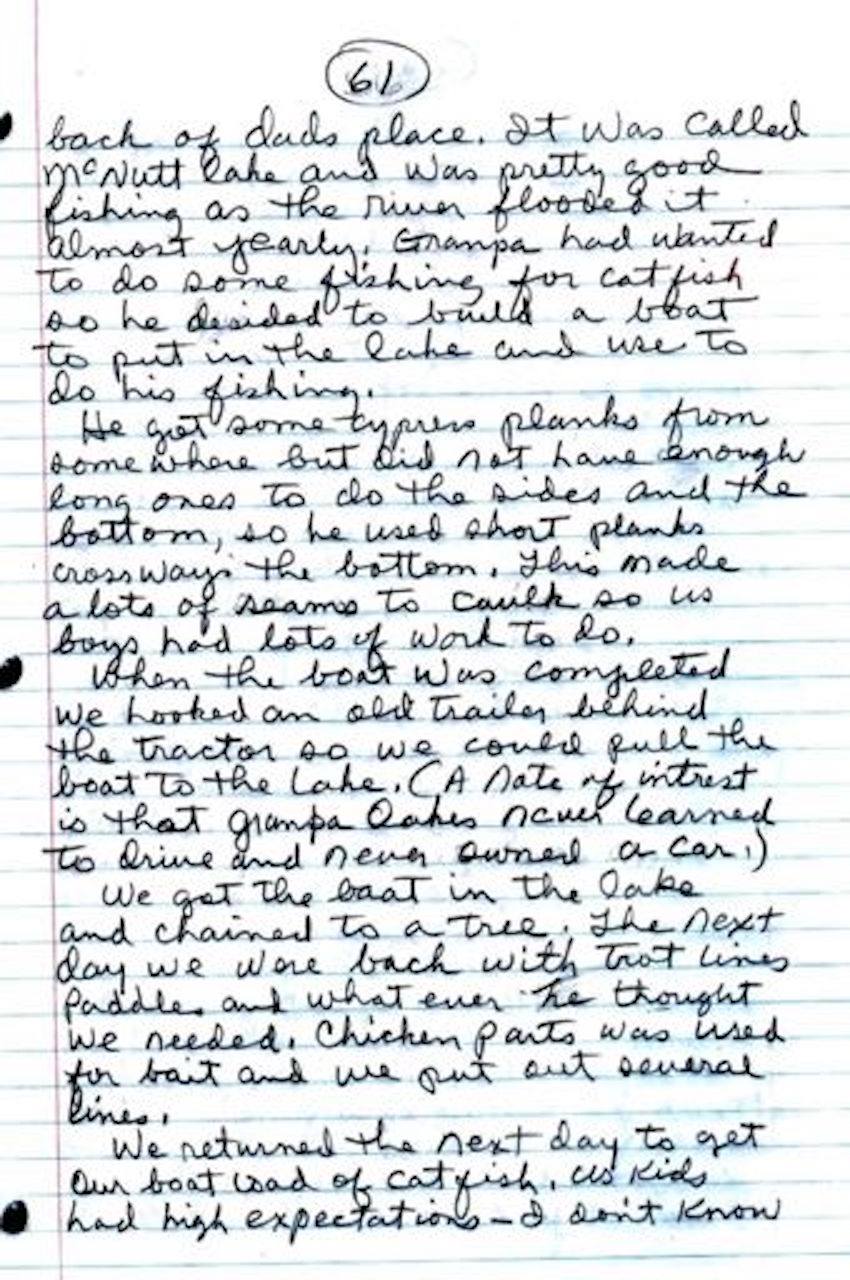 61
back of dads place. It was called
McNutt lake and was pretty good
fishing as the river flooded it
almost yearly. Granpa had wanted
to do some fishing for catfish
so he desided to build a boat
to put in the lake and use to
do his fishing.
He got some cypress planks from
somewhere but did not have enough
long ones to do the sides and the
bottom, so he used short planks
crossways the bottom. This made
a lots of seams to caulk so us
boys had lots of work to do.
When the boat was completed
we hooked an old trailer behind
the tractor so we could pull the
boat to the lake. (A note of intrest
is that granpa Oakes never learned
to drive and never owned a car.)
We got the boat in the lake
and chained to a tree. The next
day we were back with trot lines
paddles and what ever he thought
we needed. Chicken parts was used
for bait and we put out several
lines.
We returned the next day to get
our boat load of catfish. us kids
had high expectations - I don't know